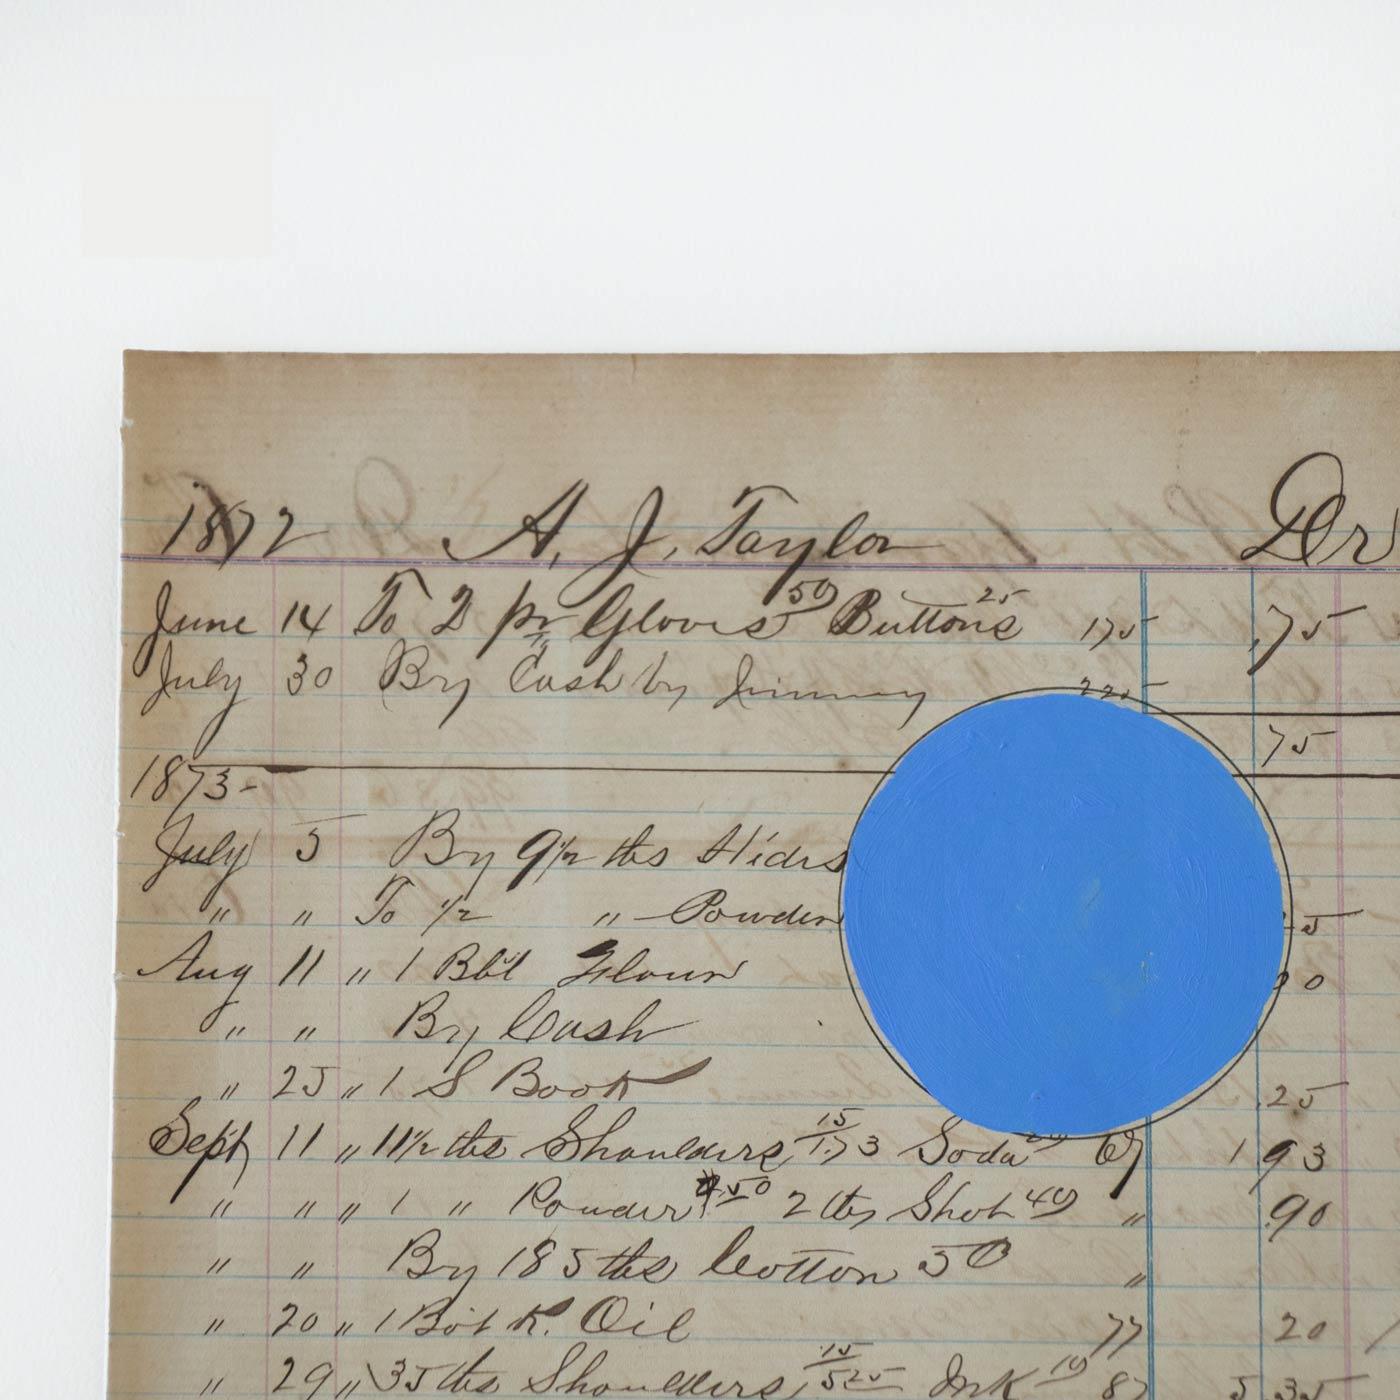 1872 A. J. Taylor Dr
June 14 To 2 pr Gloves 50 Buttons 25 175 .75
July 30 By Cash by Jimmy 225
75
1873-
July 5 By 9 1/2 lbs Hides
" " To 1/2 " Powder
Aug 11 " 1 Bbl Flour
" " By Cash
" 25 " 1 S Book .25
Sept 11 " 11 1/2 lbs Shoulders 15 1.73 Soda 20 67 1 93
" " " 1 " Powder 50 2 lbs Shot 40 " .90
" " By 185 lbs Cotton "
" 20 " 1 Bot K. Oil 77 20
" 29 " 35 lbs Shoulders 15 525 Ink 10 87 5.35